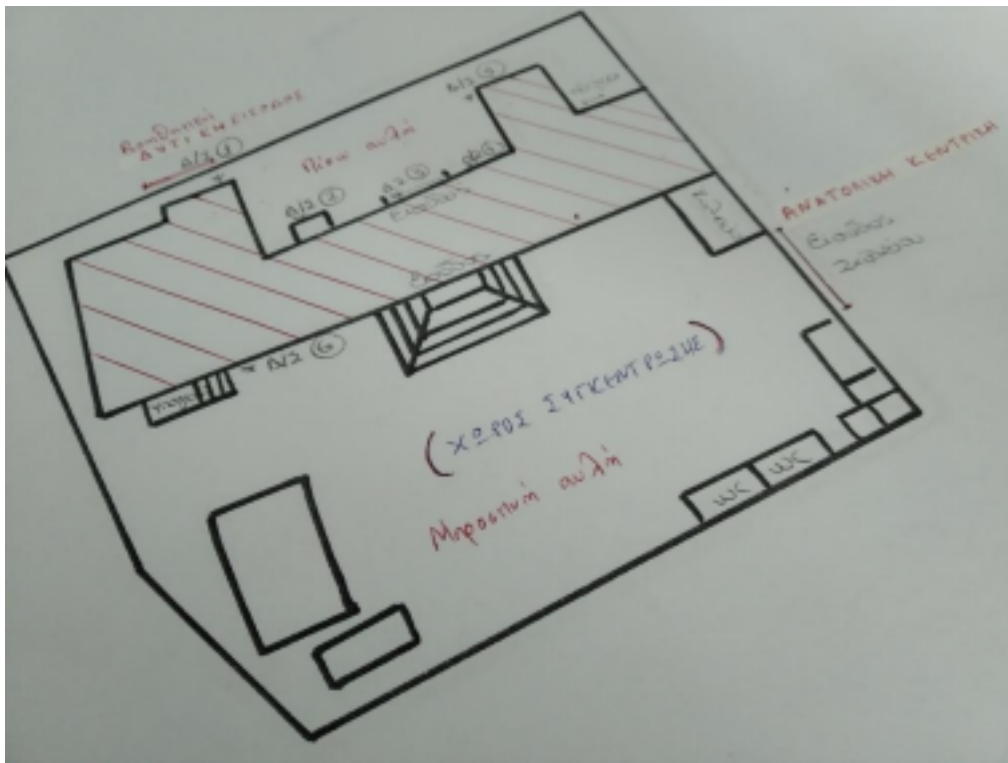 Βοηθητική
ΔΥΤΙΚΗ ΕΙΣΟΔΟΣ
Πίσω αυλή
Δ/2 ①
Δ/2 ②
Δ/2 ③
Είσοδος
Είσοδος
Δ/2 ⑥
ΑΝΑΤΟΛΙΚΗ ΚΕΝΤΡΙΚΗ
Είσοδος
Σχολείου
(ΧΩΡΟΣ ΣΥΓΚΕΝΤΡΩΣΗΣ)
Μπροστινή αυλή
WC
WC